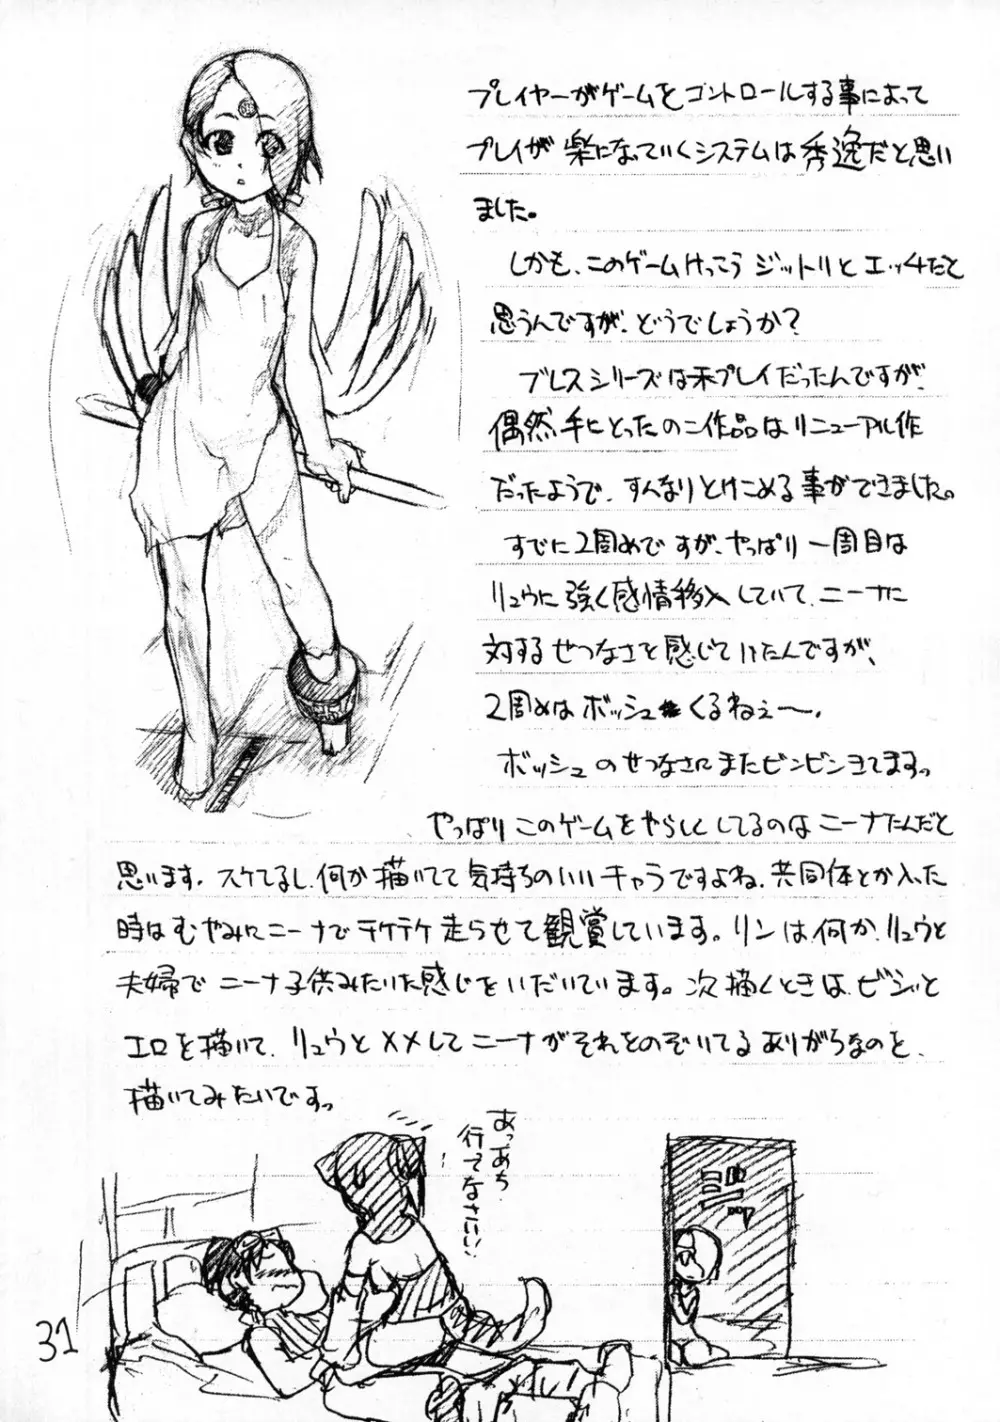 プレイヤーがゲームをコントロールする事によって
プレイが楽になっていくシステムは秀逸だと思い
ました。
しかも、このゲームけっこうジットリとエッチだと
思うんですが、どうでしょうか?
ブレスシリーズは未プレイだったんですが、
偶然手にとったのこ作品はリニューアル作
だったようで、すんなりとけこめる事ができました。
すでに2周めですが、やっぱり一周目は
リュウに強く感情移入していて、ニーナに
対するせつなさを感じていたんですが、
2周めはボッシュくるねぇ〜。
ボッシュのせつなさにまたビンビンきてますっ
やっぱりこのゲームをやらしくしてるのはニーナたんだと
思います。スケてるし、何か描いてて気持ちのいいキャラですよね、共同体とか入った
時はむやみにニーナでテケテケ走らせて観賞しています。リンは何か、リュウと
夫婦でニーナ子供みたいな感じをいだいています。次描くときは、ビシッと
エロを描いて、リュウと××してニーナがそれをのぞいてるありがちなのを、
描いてみたいですっ
あっあち
行ってなさい!!
!
ジーッ
31